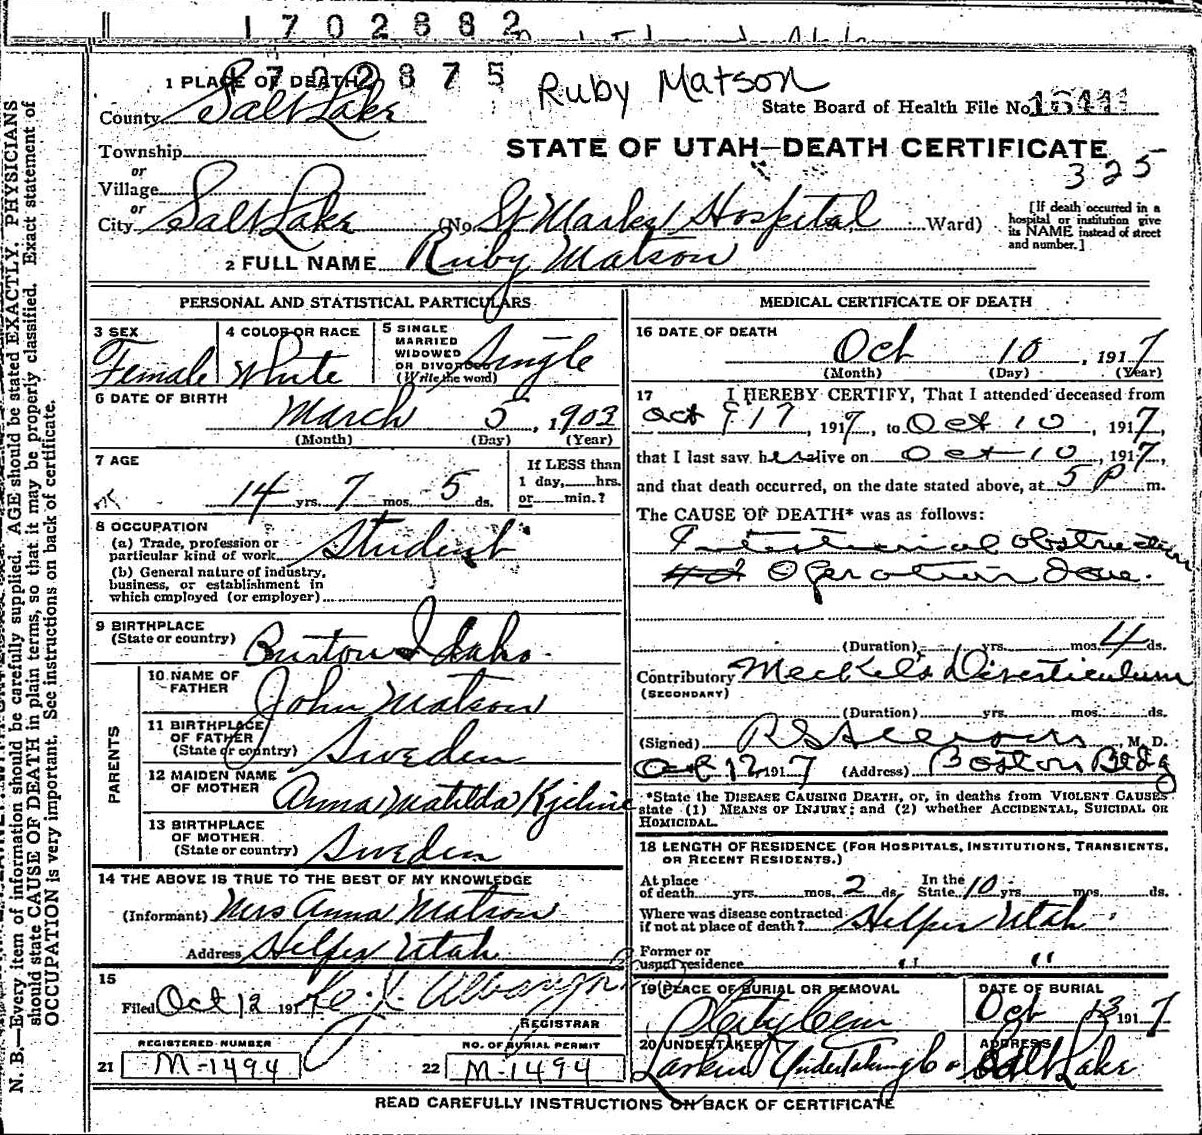 1702882
1702875
Ruby Matson
State Board of Health File No.
1 PLACE OF DEATH
County Salt Lake
STATE OF UTAH—DEATH CERTIFICATE
325
Township
or
Village
or
City Salt Lake (No. St Marks Hospital Ward)
[If death occurred in a hospital or institution give its NAME instead of street and number.]
2 FULL NAME Ruby Matson
PERSONAL AND STATISTICAL PARTICULARS
3 SEX Female
4 COLOR OR RACE White
5 SINGLE MARRIED WIDOWED OR DIVORCED (Write the word) Single
6 DATE OF BIRTH March 5, 1903
(Month) (Day) (Year)
7 AGE 14 yrs. 7 mos. 5 ds.
If LESS than 1 day, hrs. or min.?
8 OCCUPATION
(a) Trade, profession or particular kind of work Student
(b) General nature of industry, business, or establishment in which employed (or employer)
9 BIRTHPLACE
(State or country) Burton Idaho.
PARENTS
10 NAME OF FATHER John Matson
11 BIRTHPLACE OF FATHER (State or country) Sweden
12 MAIDEN NAME OF MOTHER Anna Matilda
13 BIRTHPLACE OF MOTHER (State or country) Sweden
14 THE ABOVE IS TRUE TO THE BEST OF MY KNOWLEDGE
(Informant) Mrs Anna Matson
Address Helper Utah
15
Filed Oct 12 191
REGISTRAR
REGISTERED NUMBER
21 M-1494
NO. OF BURIAL PERMIT
22 M-1494
MEDICAL CERTIFICATE OF DEATH
16 DATE OF DEATH
Oct 10, 1917
(Month) (Day) (Year)
17 I HEREBY CERTIFY, That I attended deceased from
Oct, 1917, to Oct 10, 1917,
that I last saw her alive on Oct 10, 1917,
and that death occurred, on the date stated above, at 5 P m.
The CAUSE OF DEATH* was as follows:
Intestinal obstruction
Operation Done.
(Duration) yrs. mos. 4 ds.
Contributory Meckel's Diverticulum
(SECONDARY)
(Duration) yrs. mos. ds.
(Signed) M. D.
Oct 12 1917 (Address) Boston Bldg
*State the DISEASE CAUSING DEATH, or, in deaths from VIOLENT CAUSES state (1) MEANS OF INJURY; and (2) whether ACCIDENTAL, SUICIDAL OR HOMICIDAL.
18 LENGTH OF RESIDENCE (FOR HOSPITALS, INSTITUTIONS, TRANSIENTS, OR RECENT RESIDENTS.)
At place of death yrs. mos. 2 ds. In the State 10 yrs. mos. ds.
Where was disease contracted if not at place of death? Helper Utah
Former or usual residence " "
19 PLACE OF BURIAL OR REMOVAL
City Cem
DATE OF BURIAL
Oct 13 1917
20 UNDERTAKER
Larkin Undertaking Co
ADDRESS
Salt Lake
READ CAREFULLY INSTRUCTIONS ON BACK OF CERTIFICATE
N. B.—Every item of information should be carefully supplied. AGE should be stated EXACTLY. PHYSICIANS
should state CAUSE OF DEATH in plain terms, so that it may be properly classified. Exact statement of
OCCUPATION is very important. See instructions on back of certificate.